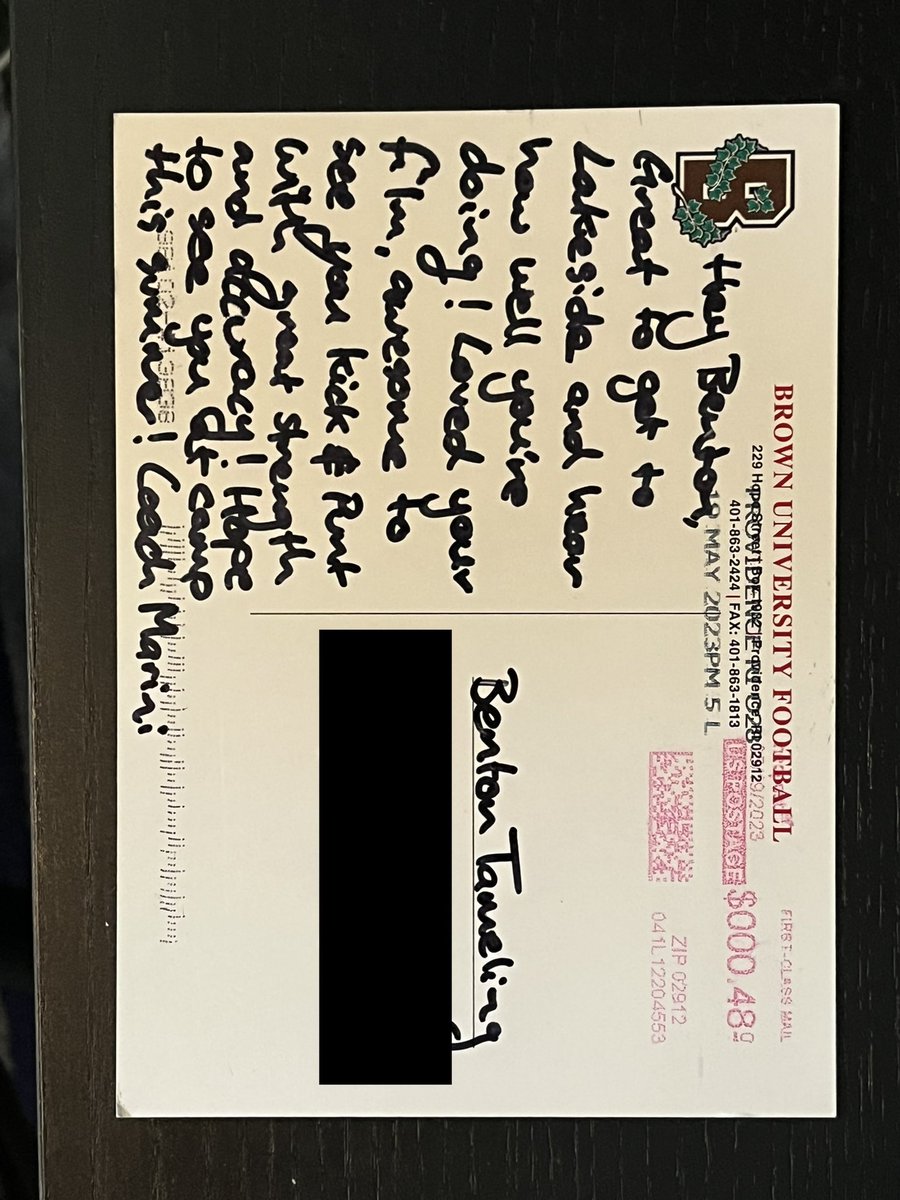 B
BROWN UNIVERSITY FOOTBALL
229 Hope Street | Box 1932 | Providence, RI 02912
401-863-2424 | FAX: 401-863-1813
PROVIDENCE RI 028
19 MAY 2023 PM 5 L
FIRST-CLASS MAIL
9/2023
US POSTAGE $000.48⁰
ZIP 02912
041L12204553
Hey Benton,
Great to get to
Lakeside and hear
how well you're
doing! Loved your
film, awesome to
see you kick & Punt
with great strength
and accuracy! Hope
to see you at camp
this summer! Coach Marini
Benton Tameling